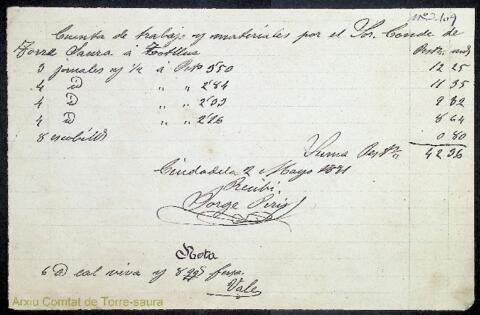 Cuenta de trabajo y materiales por el Sor. Conde de
Torre Saura á
3 jornales y 1/2 á Pts 3'50 12 25
4 id " " 2'84 11 35
4 id " " 2'
4 id " " 2'16 8 64
8 escobillas 0 80
Suma Pest. 42 36
Ciudadela 2 Mayo 1881
Recibí
Jorge Piris
Nota
6 cal viva y 8
Vale
Arxiu Comtat de Torre-saura